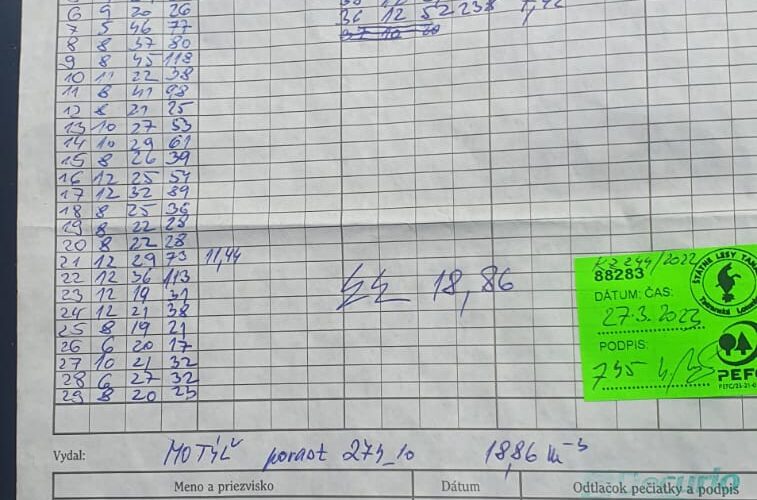 6 9 20 26
36 12 52 238
7 5 46 77
8 8 37 80
9 8 45 118
10 11 22 38
11 8 41 98
12 8 21 25
13 10 27 53
14 10 29 61
15 8 26 39
16 12 25 54
17 12 32 89
18 8 25 36
19 8 22 28
20 8 22 28
21 12 29 73 11,44
22 12 36 113
23 12 19 31
24 12 21 38
25 8 19 21
26 6 20 17
27 10 21 32
28 6 27 32
29 8 20 23
18,86
KZ 244/2022
88283
DÁTUM: ČAS:
27.3.2023
PODPIS:
ŠTÁTNE LESY
PEFC
Vydal: MOTÝĽ porast 274_10 18,86 m-3
Meno a priezvisko Dátum Odtlačok pečiatky a podpis